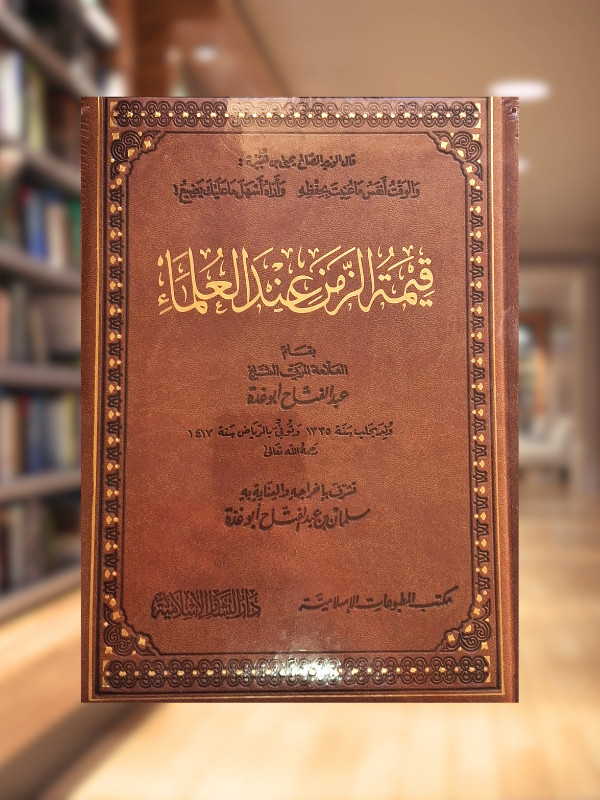 قال الوزير الصالح يحيى بن هُبَيْرة :
وَالوَقْتُ أَنفَسُ مَا عُنِيتَ بِحِفْظِهِ وَأَرَاهُ أَسْهَلَ مَا عَلَيْكَ يَضِيعُ !
قِيمَةُ الزَّمَنِ عِنْدَ العُلَمَاءِ
بقلم
العلّامة المربّي الشيخ
عبد الفتّاح أبو غدّة
وُلِدَ بحلب سَنَة ١٣٣٥ وتُوفِّيَ بالرّياض سَنة ١٤١٧
رحمهُ الله تعَالىٰ
تشرّف بإخراجه والعناية به
سلمان بن عبد الفتّاح أبو غُدّة
مكتب المطبوعات الإسلاميّة
دار البشائر الإسلامية